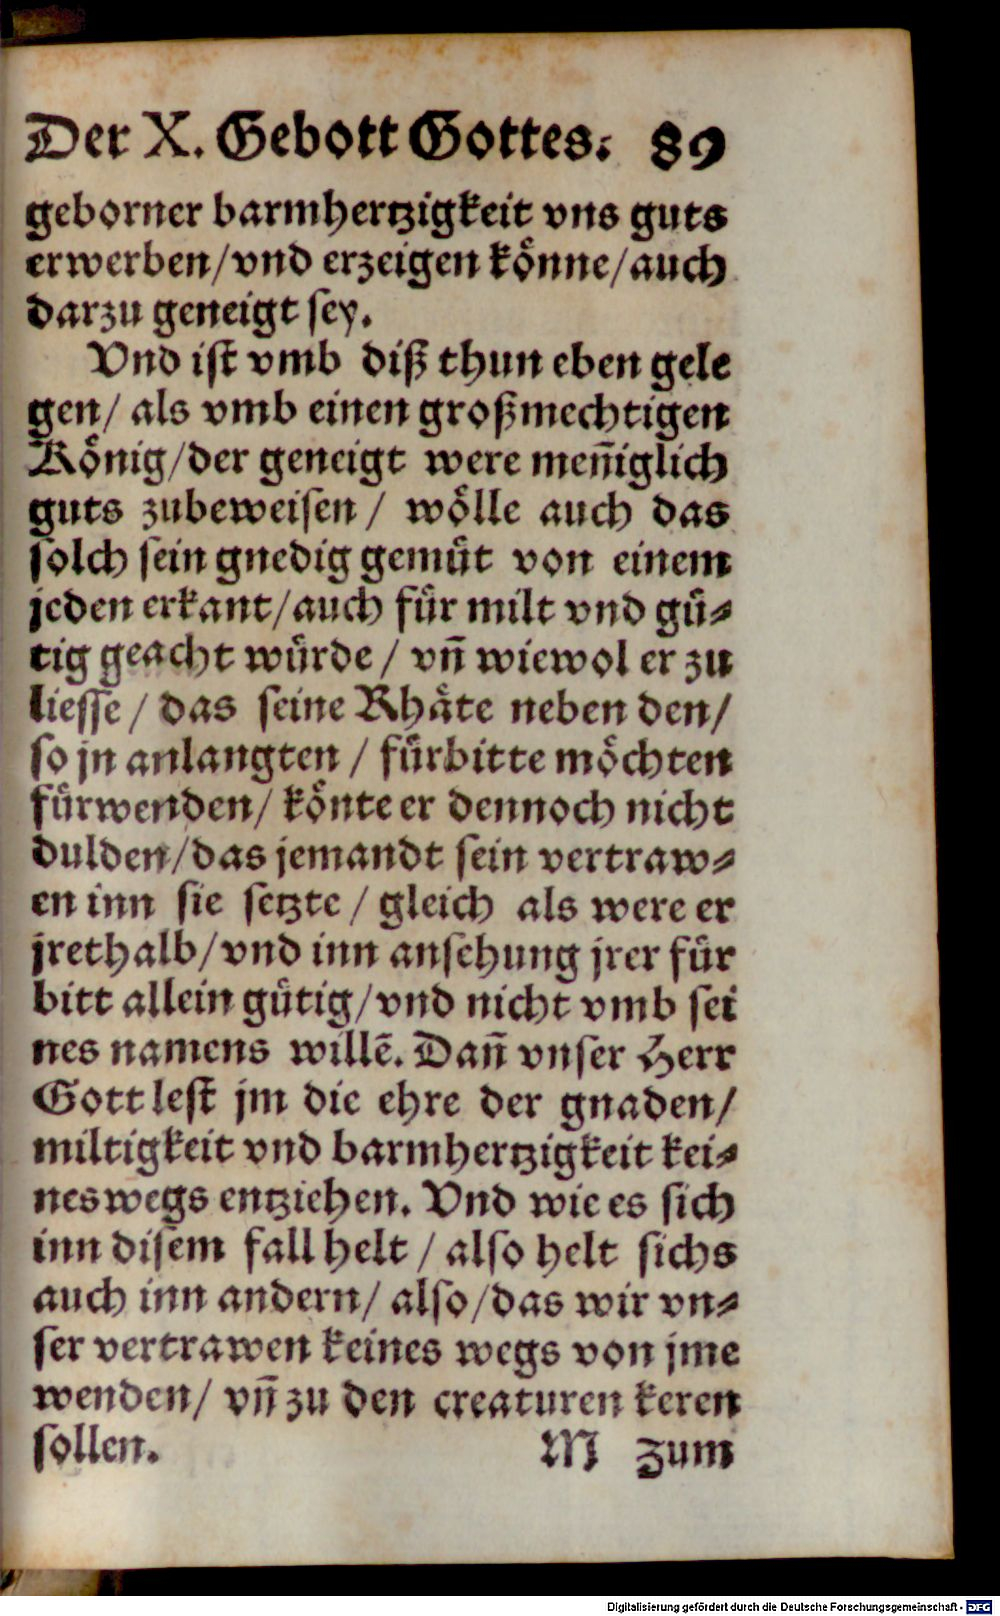 Der X. Gebott Gottes. 89
geborner barmhertzigkeit vns guts
erwerben/vnd erzeigen koͤnne/auch
darzu geneigt sey.
Vnd ist vmb diß thun eben gele
gen/ als vmb einen großmechtigen
Koͤnig/der geneigt were men̄iglich
guts zubeweisen/ woͤlle auch das
solch sein gnedig gemuͤt von einem
jeden erkant/auch fuͤr milt vnd guͤ⸗
tig geacht wuͤrde/ vn̄ wiewol er zu
liesse/ das seine Rhaͤte neben den/
so jn anlangten/ fuͤrbitte moͤchten
fuͤrwenden/ koͤnte er dennoch nicht
dulden/das jemandt sein vertraw⸗
en inn sie setzte/ gleich als were er
jrethalb/vnd inn ansehung jrer fuͤr
bitt allein guͤtig/vnd nicht vmb sei
nes namens willē. Dan̄ vnser Herr
Gott lest jm die ehre der gnaden/
miltigkeit vnd barmhertzigkeit kei⸗
neswegs entziehen. Vnd wie es sich
inn disem fall helt/ also helt sichs
auch inn andern/ also/das wir vn⸗
ser vertrawen keines wegs von jme
wenden/ vn̄ zu den creaturen keren
sollen. M zum
Digitalisierung gefördert durch die Deutsche Forschungsgemeinschaft - DFG